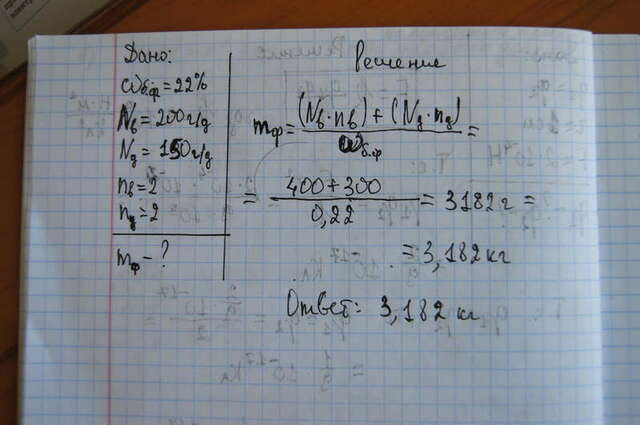 Дано:
ωб.ф = 22%
Nв = 200 г/д
Nд = 150 г/д
nв = 2
nд = 2
mф - ?
Решение
mф = (Nв · nв) + (Nд · nд) / ωб.ф =
= 400 + 300 / 0,22 = 3182 г =
= 3,182 кг
Ответ: 3,182 кг